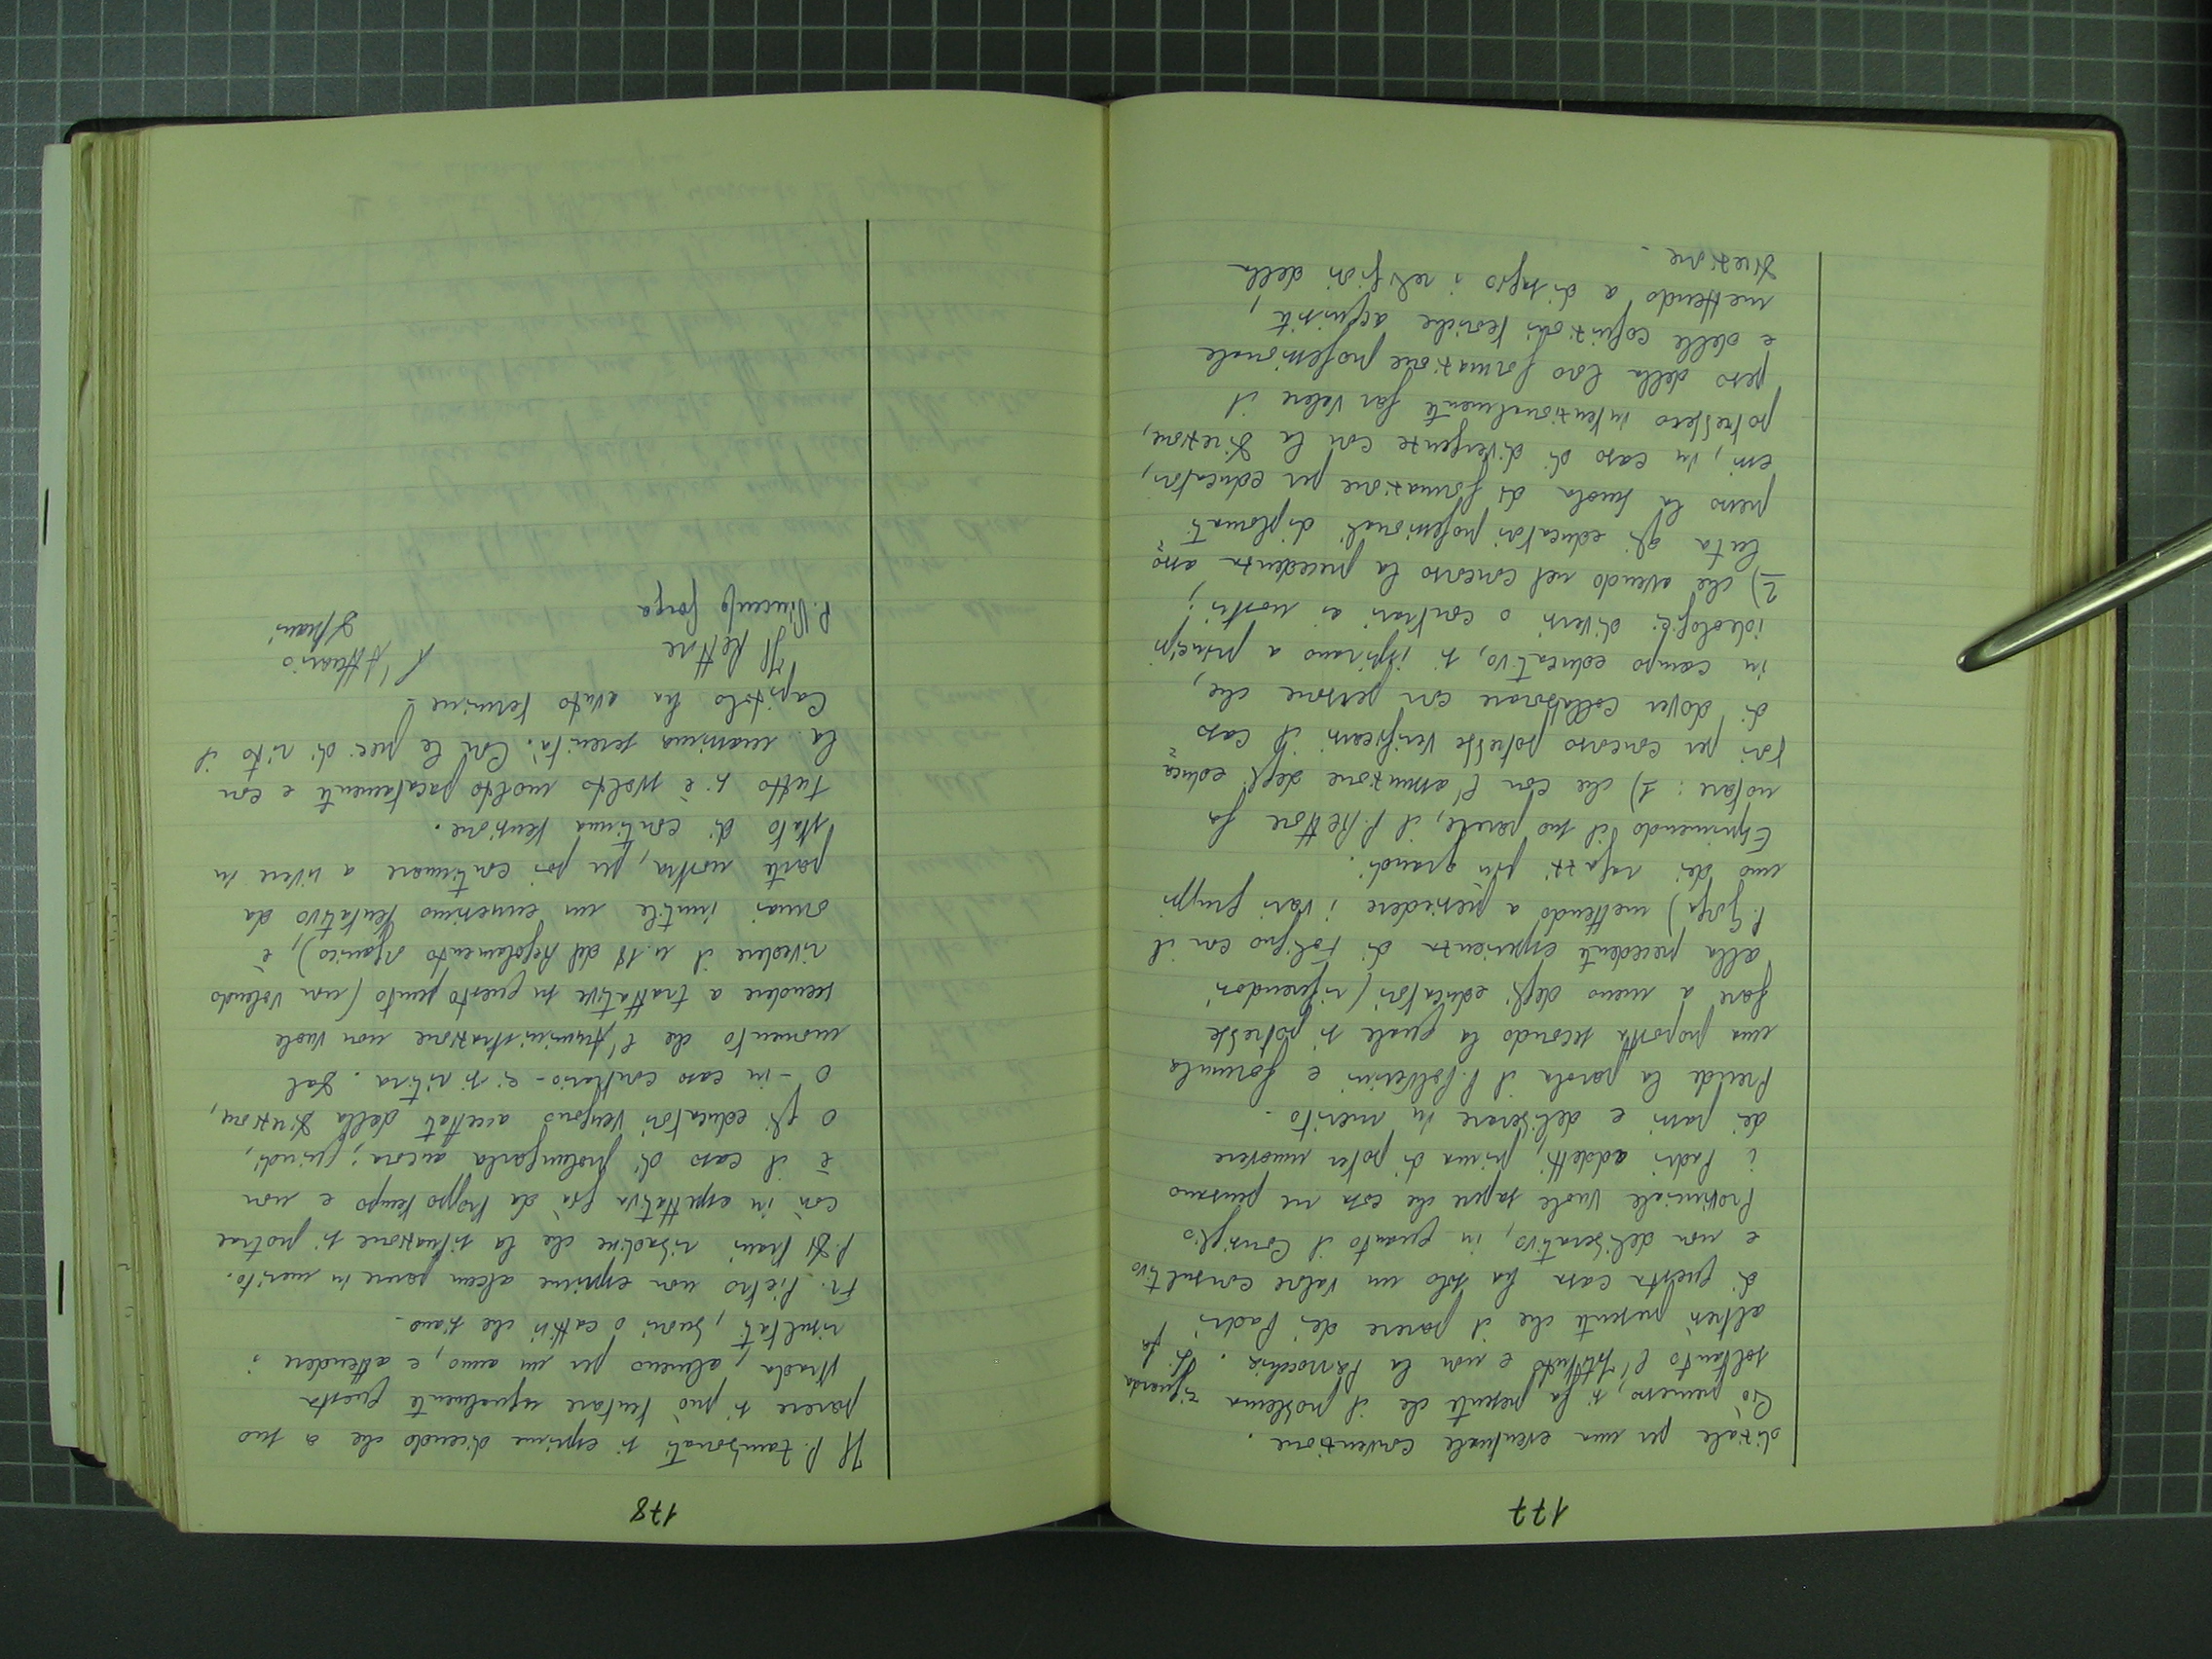 177
diziale per una eventuale convenzione.
Ciò premesso, si fa presente che il problema riguarda
soltanto l'Istituto e non la Parrocchia. Si fa
altresì presente che il parere dei Padri
di questa casa ha solo un valore consultivo
e non deliberativo, in quanto il Consiglio
Provinciale vuole sapere che cosa ne pensano
i Padri addetti, prima di poter muovere
dei passi e deliberare in merito.
Prende la parola il P. e formula
una proposta secondo la quale si potrebbe
fare a meno degli educatori (riferendosi
alla precedente esperienza di Foligno con il
P. Gorga) mettendo a presiedere i vari gruppi
uno dei ragazzi più grandi.
Esprimendo il suo parere, il P. Rettore fa
notare: 1) che con l'assunzione degli educa=
tori per concorso potrebbe verificarsi il caso
di dover collaborare con persone che,
in campo educativo, si ispirano a principi
ideologici diversi o contrari ai nostri;
2) che avendo nel concorso la precedenza asso=
luta gli educatori professionali diplomati
presso la scuola di formazione per educatori,
essi, in caso di divergenze con la Direzione,
potrebbero intenzionalmente far valere il
peso della loro formazione professionale
e delle cognizioni teoriche acquisite,
mettendo a disagio i religiosi della
Direzione.
178
Il P. Zambonati si esprime dicendo che a suo
parere si può tentare ugualmente questa
strada, almeno per un anno, e attendere i
risultati, buoni o cattivi che siano.
Fr. Pietro non esprime alcun parere in merito.
P. ribadine che la situazione si protrae
così in aspettativa già da troppo tempo e non
è il caso di prolungarla ancora; quindi,
o gli educatori vengono accettati dalla Direzione,
o - in caso contrario - ci si ritira. Dal
momento che l'Amministrazione non vuole
scendere a trattative su questo punto (non volendo
rivedere il n. 18 del Regolamento organico), è
ormai inutile un ennesimo tentativo da
parte nostra, per poi continuare a vivere in
stato di continua tensione.
Tutto si è svolto molto pacatamente e con
la massima serenità. Con le preci di rito il
Capitolo ha avuto termine.
Il Rettore
L'Attuario
P. Vincenzo Gorga